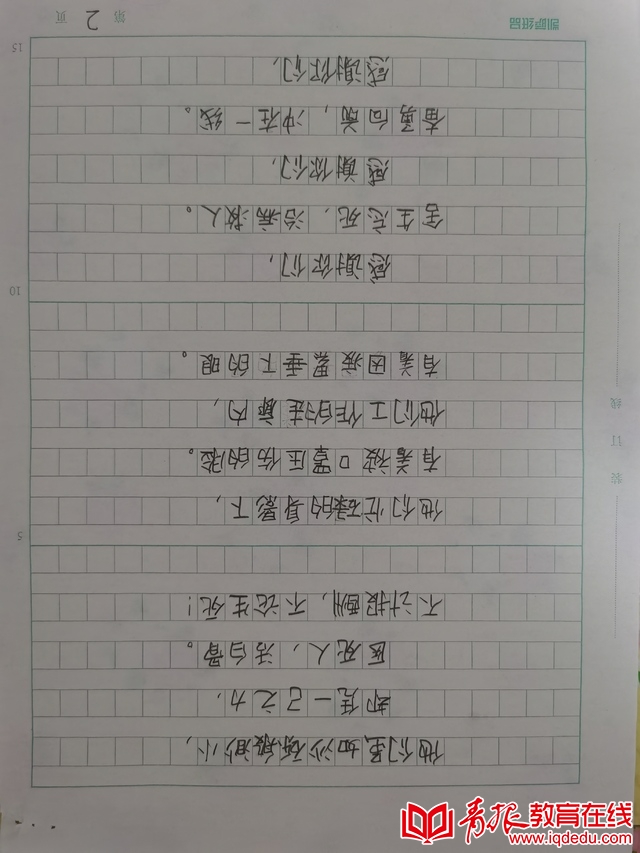 他们虽如沙砾般渺小，
却凭一己之力，
医死人，活白骨。
不计报酬，不论生死！
5
他们忙碌的身影下，
有着被口罩压伤的脸。
他们工作的走廊内，
有着因疲累垂下的眼。
10
感谢你们，
舍生忘死，治病救人。
感谢你们，
奋勇向前，冲在一线。
感谢你们，
15
凯萨纸品
第 2 页
装 订 线
青报教育在线
www.iqdedu.com